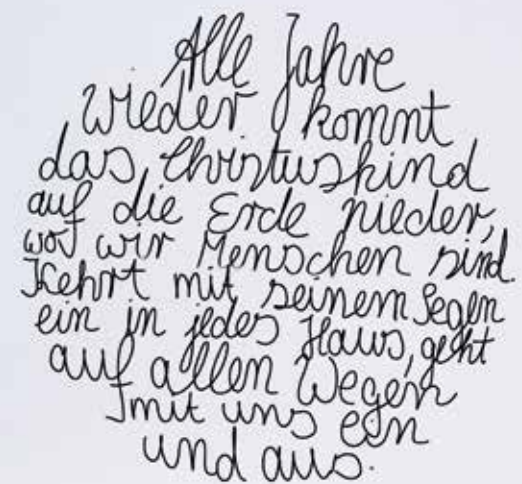 Alle Jahre
wieder kommt
das Christuskind
auf die Erde nieder,
wo wir Menschen sind.
Kehrt mit seinem Segen
ein in jedes Haus, geht
auf allen Wegen
mit uns ein
und aus.